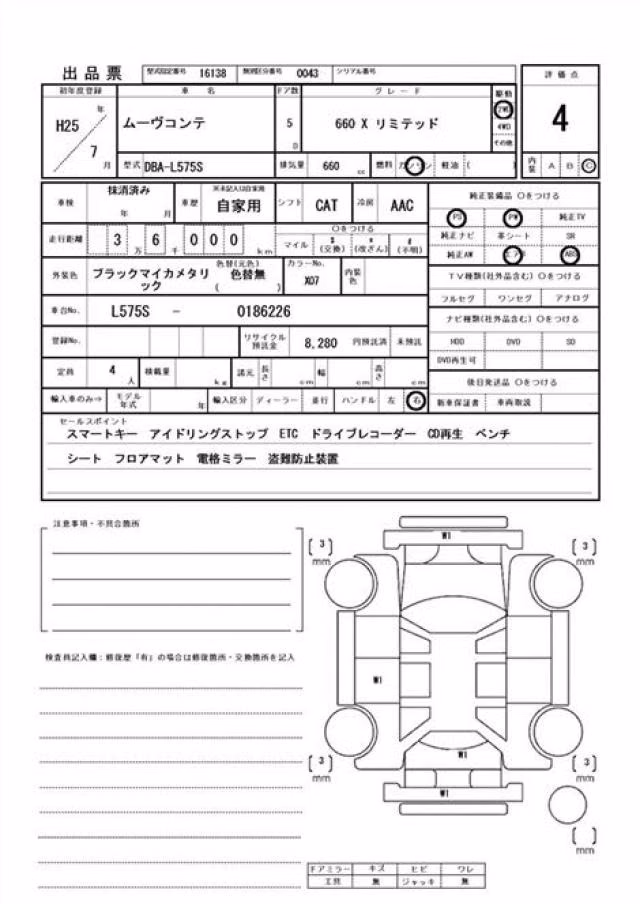 出品票 型式指定番号 16138 類別区分番号 0043 シリアル番号
初年度登録 車名 ドア数 グレード 駆動 評価点
H25 年 ムーヴコンテ 5 D 660 X リミテッド 2WD 4WD その他 4
7 月 型式 DBA-L575S 排気量 660 cc 燃料 ガソリン 軽油 ( ) 内装 A B C
車検 抹消済み 年 月 車歴 ※未記入は自家用 自家用 シフト CAT 冷房 AAC 純正装備品 〇をつける
PS PW 純正TV
走行距離 3 万 6 千 0 0 0 km 〇をつける マイル $ (交換) * (改ざん) # (不明) 純正ナビ 革シート SR
純正AW エアB ABS
外装色 ブラックマイカメタリック 色替(元色) 色替無 ( ) カラーNo. X07 内装色 TV種類(社外品含む)〇をつける
フルセグ ワンセグ アナログ
車台No. L575S - 0186226 ナビ種類(社外品含む)〇をつける
登録No. リサイクル預託金 8,280 円預託済 未預託 HDD DVD SD
DVD再生可
定員 4 人 積載量 kg 諸元 長さ cm 幅 cm 高さ cm 後日発送品 〇をつける
輸入車のみ⇒ モデル年式 年 輸入区分 ディーラー 並行 ハンドル 左 右 新車保証書 車両取説
セールスポイント
スマートキー アイドリングストップ ETC ドライブレコーダー CD再生 ベンチ
シート フロアマット 電格ミラー 盗難防止装置
注意事項・不具合箇所
W1
[3] mm [3] mm
検査員記入欄:修復歴「有」の場合は修復箇所・交換箇所を記入
W1
W1
[3] mm [3] mm
W1
[ ] mm
ドアミラー キズ ヒビ ワレ
工具 無 ジャッキ 無